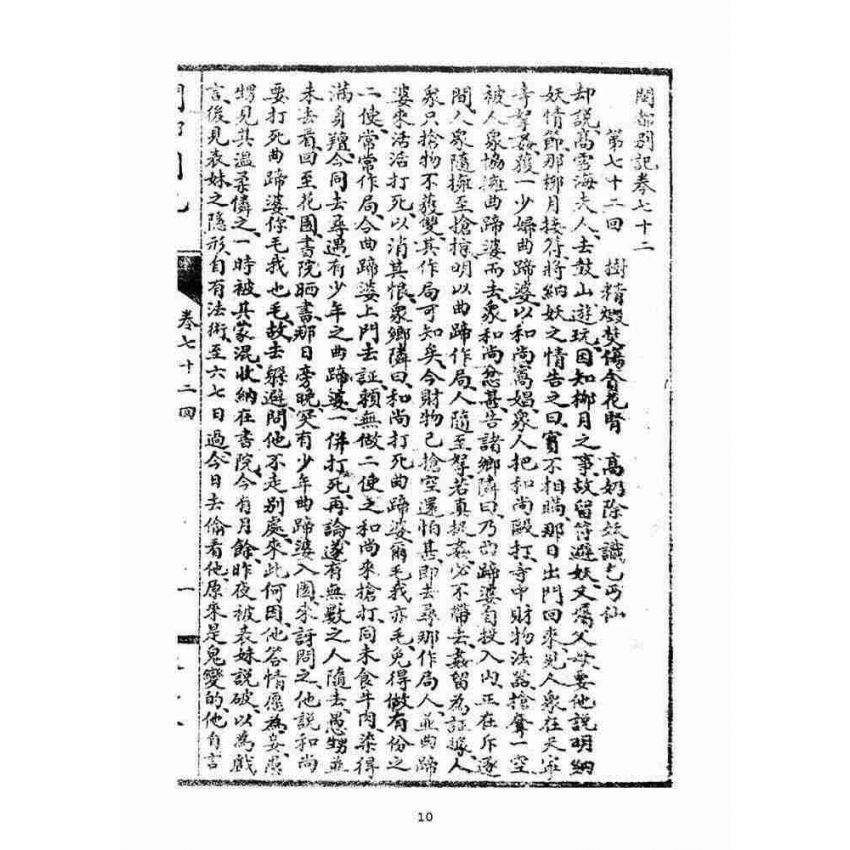 閩都別記卷七十二
第七十二回 樹精燬焚傷貪花腎 高奶除妖識乞丐仙
却說高雲海夫人去鼓山遊玩因知柳月之事故留符避妖又囑父母要他說明納
妖情節那柳月接符將納妖之情告之曰實不相瞞那日出門回來見人衆在天寧
寺拏姦獲一少婦曲蹄婆以和尚窩娼衆人把和尚毆打寺中財物法器搶奪一空
被人衆協擁曲蹄婆而去衆和尚忿甚告諸鄉隣曰乃曲蹄婆自投入内正在斥逐
間人衆隨擁至搶掠明以曲蹄作局人隨至拏若真捉姦必不帶去姦留為証據人
衆只搶物不獲雙其作局可知矣今財物已搶空還怕甚即去尋那作局人並曲蹄
婆來活活打死以消其恨衆鄉隣曰和尚打死曲蹄婆爾毛我亦毛免得做有份之
二使常常作局今曲蹄婆上門去証賴無做二使之和尚來搶打同未食牛肉染得
滿身羶今同去尋遇有少年之曲蹄婆一併打死再論遂有無數之人隨去愚甥並
未去看回至花園書院晒書那日旁晚突有少年曲蹄婆入園來訝問之他說和尚
要打死曲蹄婆你毛我也毛故去躲避問他不走別處來此何因他答情愿為妾愚
甥見其溫柔憐之一時被其蒙混收納在書院今有月餘昨夜被表妹說破以為戲
言後見表妹之隱形自有法術至六七日過今日去偷看他原來是鬼變的他自言
卷七十二回
一
10